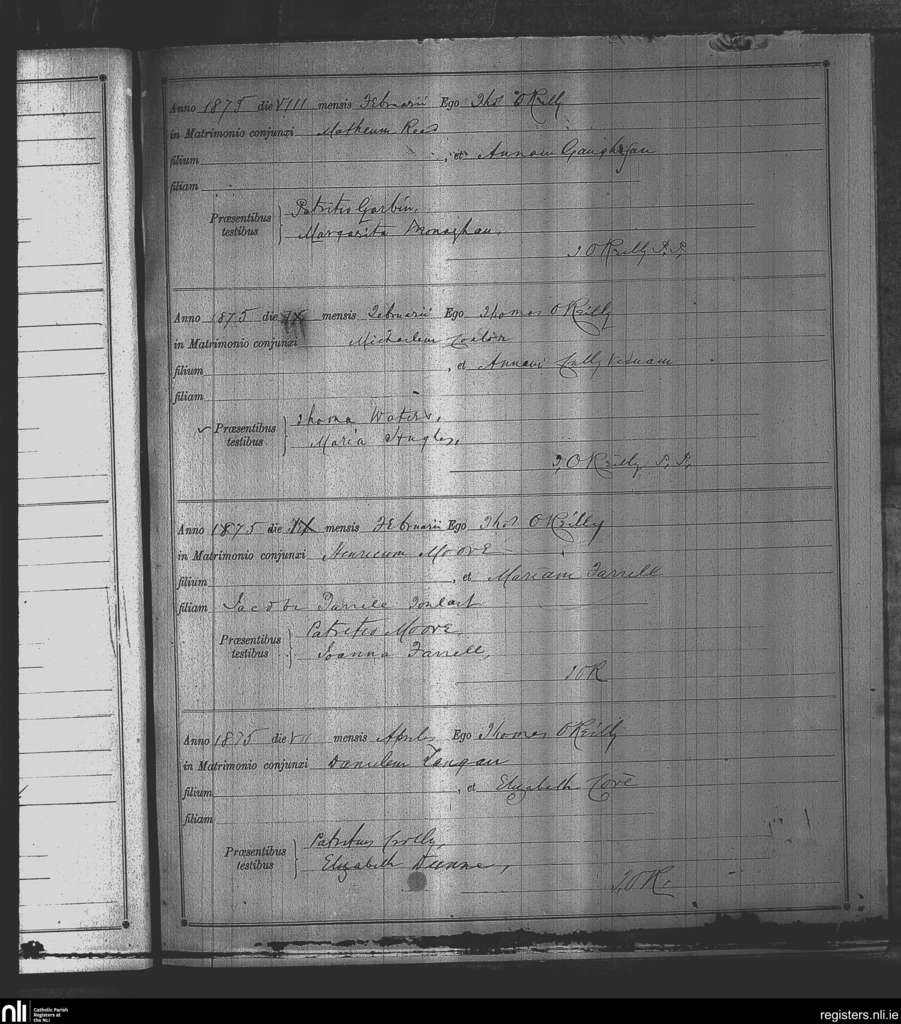 Anno 1875 die VIII mensis Februarii Ego Thos O'Reilly
in Matrimonio conjunxi Matheum Rees
filium , et Annam Gaughran
filiam
Præsentibus testibus } Patritio Garbin,
Margarita Monaghan,
T O'Reilly P.P.
Anno 1875 die IX mensis Februarii Ego Thomas O'Reilly
in Matrimonio conjunxi Michaelem
filium , et Annam Viduam
filiam
Præsentibus testibus } Thoma Waters,
Maria Hughes,
T, O'Reilly, P. P,
Anno 1875 die IX mensis Februarii Ego Thos O'Reilly
in Matrimonio conjunxi Henricum Moore
filium , et Mariam Farrell
filiam Jacobi Farrell
Præsentibus testibus } Patritio Moore
Joanna Farrell,
T O R
Anno 1875 die mensis Aprilis Ego Thomas O'Reilly
in Matrimonio conjunxi Danielem Langan
filium , et Elizabeth
filiam
Præsentibus testibus } Crolly,
Elizabeth Dunne,
T, O R,
nli Catholic Parish
Registers at
the NLI
registers.nli.ie